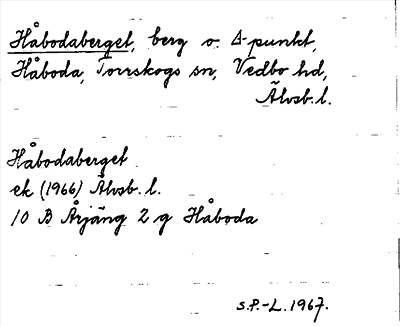 Håbodaberget, berg o. Δ-punkt,
Håboda, Torrskogs sn, Vedbo hd,
Älvsb. l.
Håbodaberget
ek (1966) Älvsb. l.
10 B Årjäng 2 g Håboda
S.P.-L. 1967.